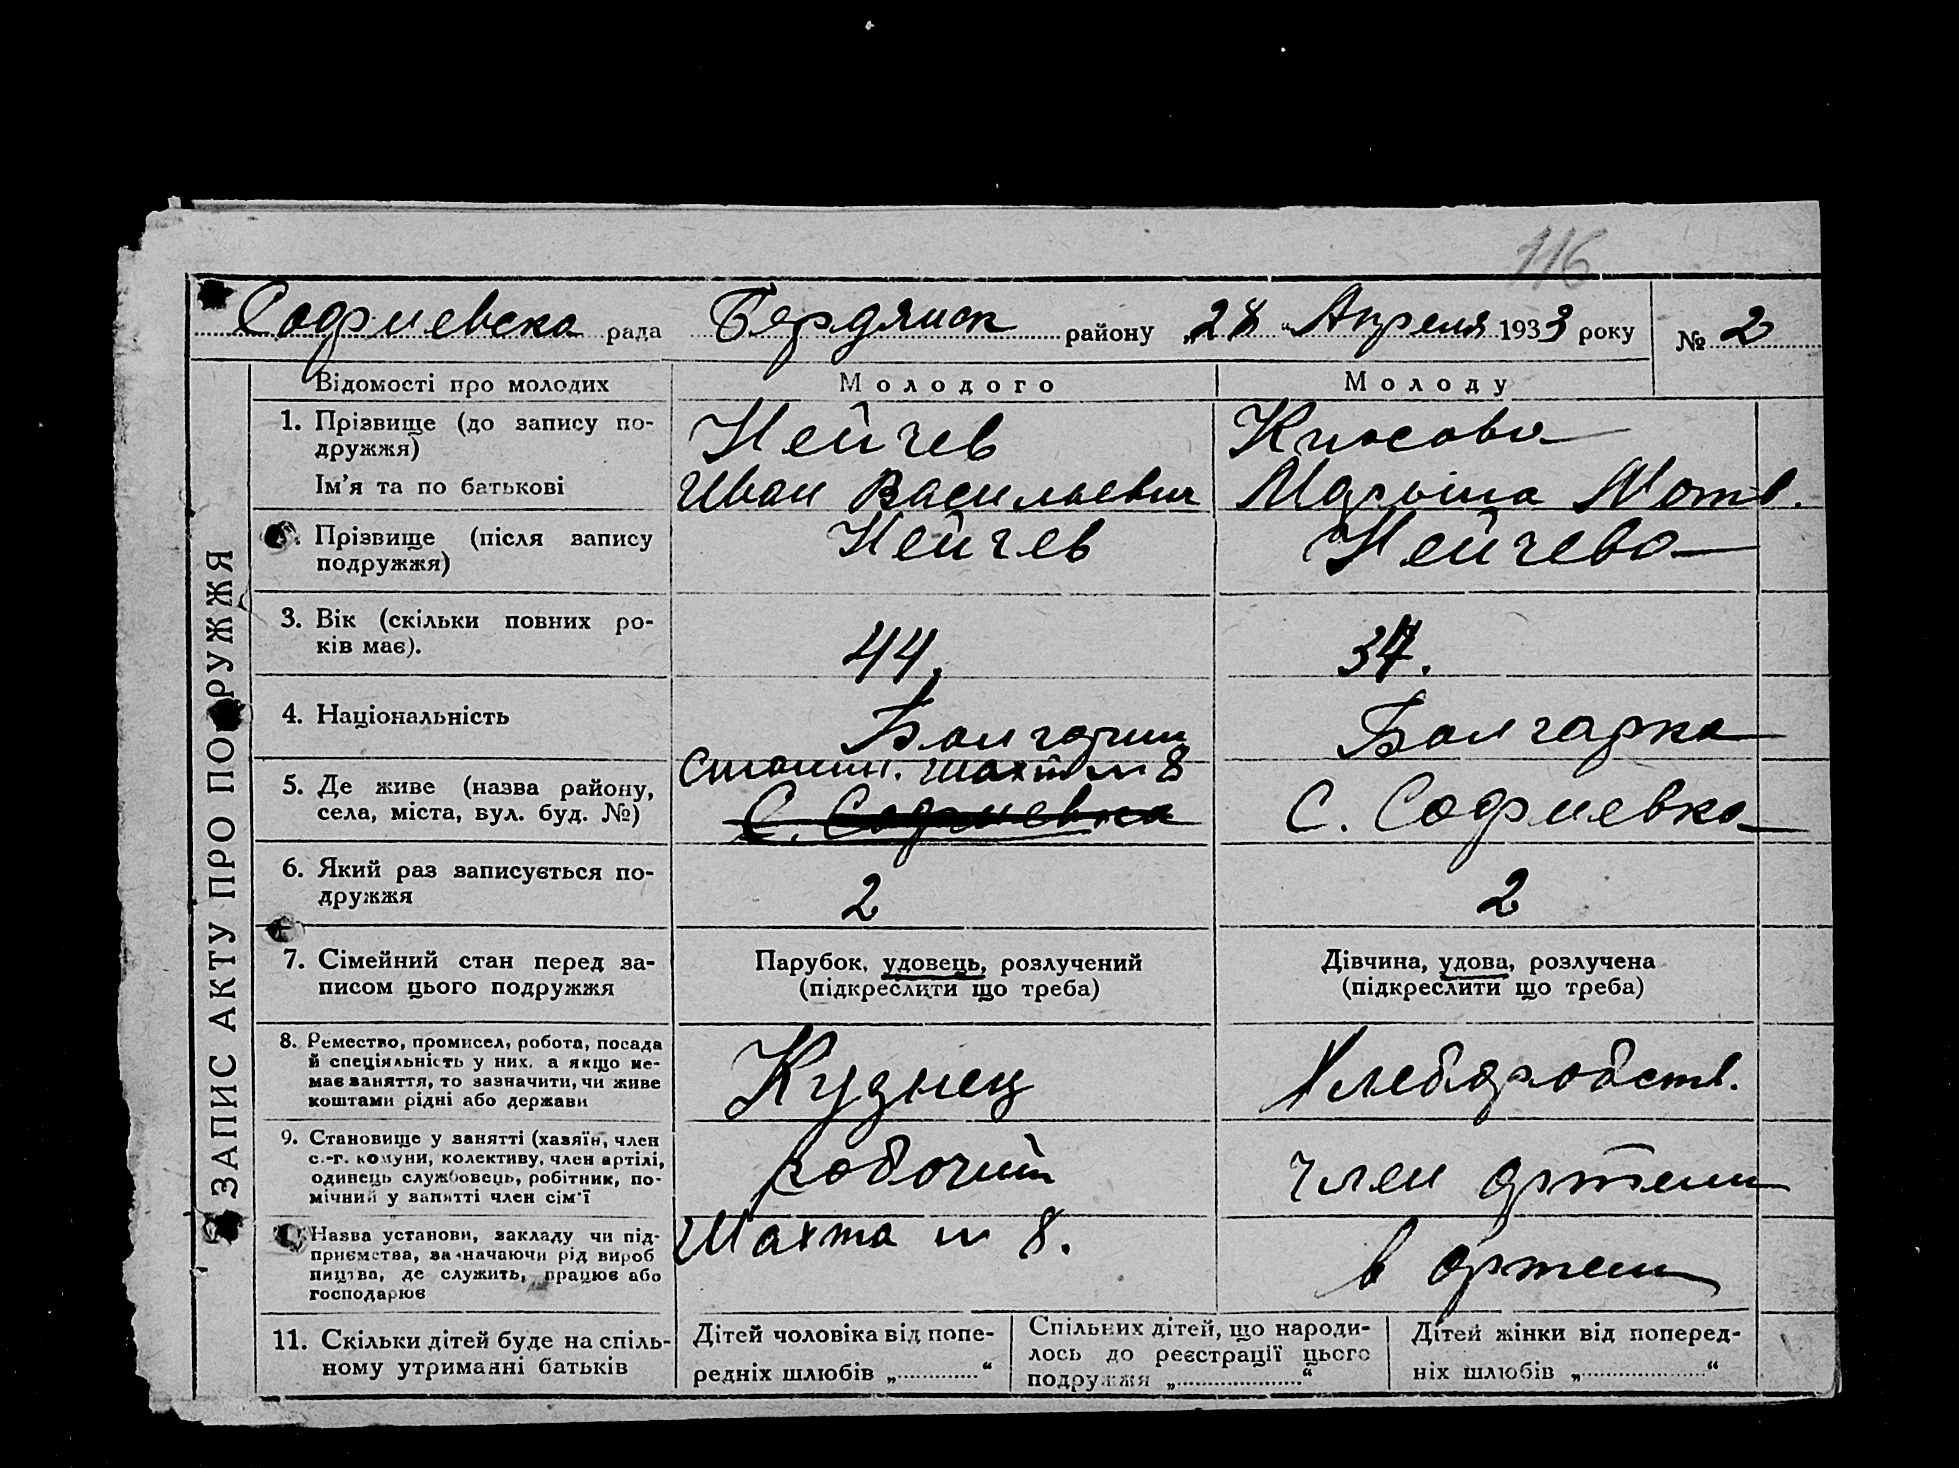 116
Софиевска рада Бердянск району „28 “ Апреля 1933 року № 2
ЗАПИС АКТУ ПРО ПОДРУЖЖЯ
Відомості про молодих Молодого Молоду
1. Прізвище (до запису по- Нейчев
дружжя)
Ім'я та по батькові Иван Васильевич Марьина Мотв.
Прізвище (після запису Нейчев Нейчева
подружжя)
3. Вік (скільки повних ро- 44. 37.
ків має).
4. Національність Болгарин Болгарка
5. Де живе (назва району, Сталин. шахта № 8
села, міста, вул. буд. №) С. Софиевка С. Софиевка
6. Який раз записується по- 2 2
дружжя
7. Сімейний стан перед за- Парубок, удовець, розлучений Дівчина, удова, розлучена
писом цього подружжя (підкреслити що треба) (підкреслити що треба)
8. Ремество, промисел, робота, посада Кузнец Хлебородств.
й спеціяльність у них, а якщо не-
має заняття, то зазначити, чи живе
коштами рідні або держави
9. Становище у занятті (хазяїн, член рабочий член артели
с.-г. комуни, колективу, член артілі,
одинець службовець, робітник, по-
мічний у занятті член сім'ї
Назва установи, закладу чи під- Шахта № 8. в артели
приємства, зазначаючи рід вироб
ництва, де служить, працює або
господарює
11. Скільки дітей буде на спіль-
ному утриманні батьків
Дітей чоловіка від попе-
редніх шлюбів „ “
Спільних дітей, що народи-
лось до реєстрації цього
подружжя „ “
Дітей жінки від поперед-
ніх шлюбів „ “